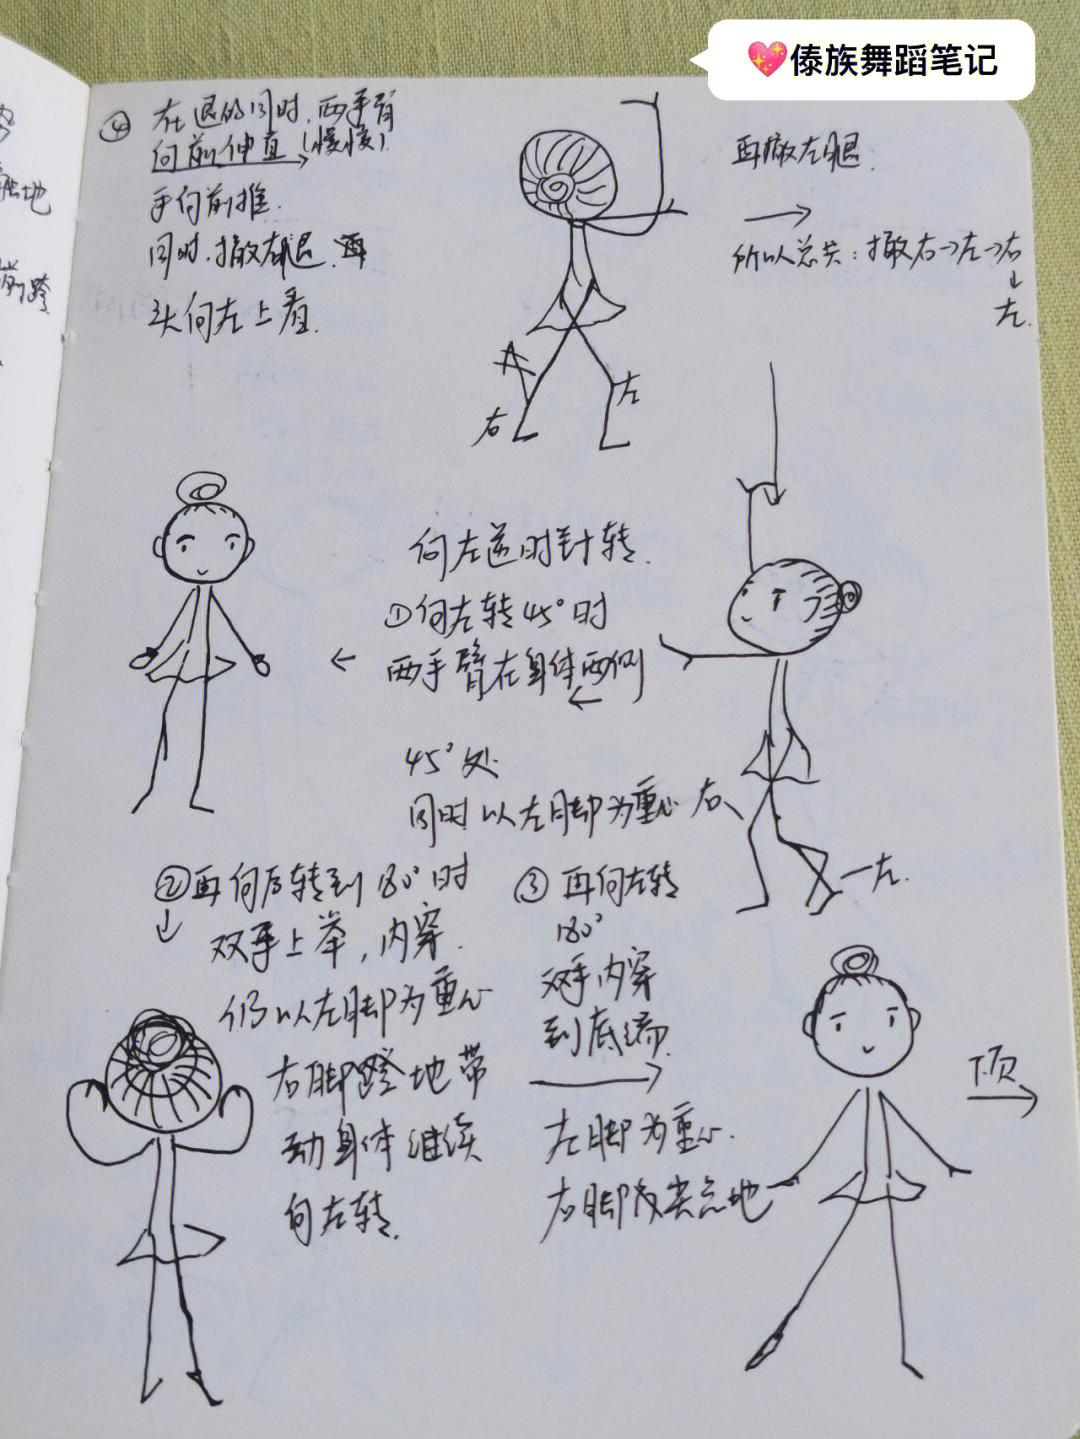 傣族舞蹈笔记
④ 在退的同时,两手臂
向前伸直(慢慢)
手向前推.
同时.撤右腿.再
头向左上看.
右
左
再撤左腿.
所以总共:撤右→左→右
↓
左.
向左逆时针转.
①向左转45°时
两手臂在身体两侧
45°处
同时以左脚为重心
右
左.
②再向后转到180°时
双手上举,内穿.
仍以左脚为重心
右脚蹬地带
动身体继续
向左转.
③ 再向左转
180°
双手内穿
到底端.
左脚为重心.
右脚后尖点地
下页